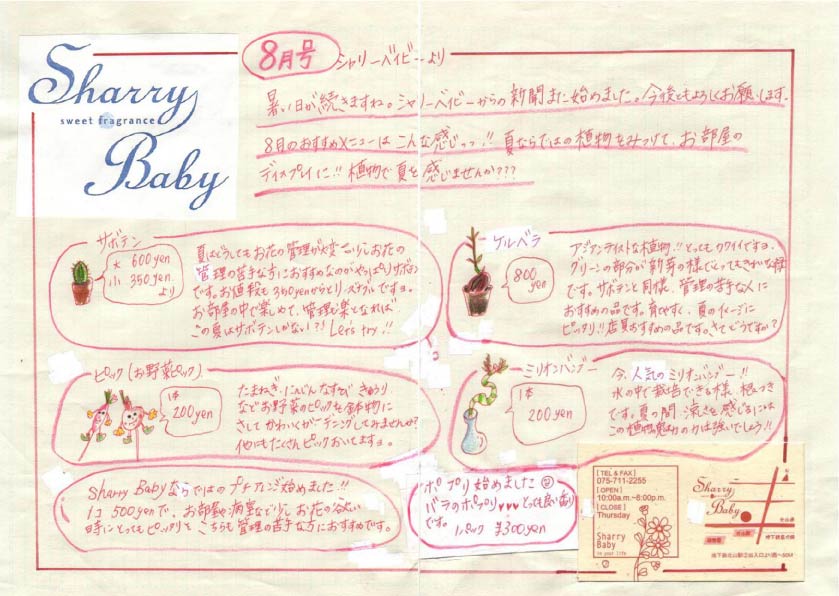 Sharry
sweet fragrance
Baby
8月号
シャリーベイビーより
暑い日が続きますね。シャリーベイビーからの新聞また始めました。今後ともよろしくお願いします。
8月のおすすめメニューはこんな感じっっ!! 夏ならではの植物をみつけて、お部屋の
ディスプレイに!! 植物で夏を感じませんか???
サボテン
大 600yen
小 350yen
より
夏はどうしてもお花の管理が大変
お花の
管理の苦手な方におすすめなのがやっぱりサボテン
です。お値段も350yenからとリーズナブルですョ。
お部屋の中で楽しめて、管理も楽となれば
この夏はサボテンしかない?! Let's try!!
ケルベラ
800
yen
アジアンテイストな植物!! とってもカワイイですョ。
グリーンの部分が新芽の様でとってもきれいな緑
です。サボテンと同様、管理の苦手な人に
おすすめの品です。育てやすく、夏のイメージに
ピッタリ!! 店員おすすめの品です。さてどうですか?
ピック(お野菜ピック)
1本
200yen
たまねぎ・にんじん・なすび・きゅうり
などお野菜のピックを鉢物に
さしてかわいくガーデニングしてみませんか?
他にもたくさんピックおいてますョ。
ミリオンバンブー
1本
200yen
今、人気のミリオンバンブー!!
水の中で栽培できる様、根つき
です。夏の間、涼しさを感じるには
この植物魅力の力は強いでしょう!!
Sharry Babyならではのプチアレンジ始めました!!
1コ 500yenで、お部屋や病室などに
お花の欲しい
時にとってもピッタリ
こちらも管理の苦手な方におすすめです。
ポプリ始めました
バラのポプリ♥♥♥とっても良い香り
です。
1パック ¥300yen
[TEL & FAX]
075-711-2255
[OPEN]
10:00a.m.~6:00p.m.
[CLOSE]
Thursday
Sharry
Baby
in your life
Sharry
Baby
N
北山通
北山駅
地下鉄烏丸線
地下鉄北山駅②出入口より西へ50M